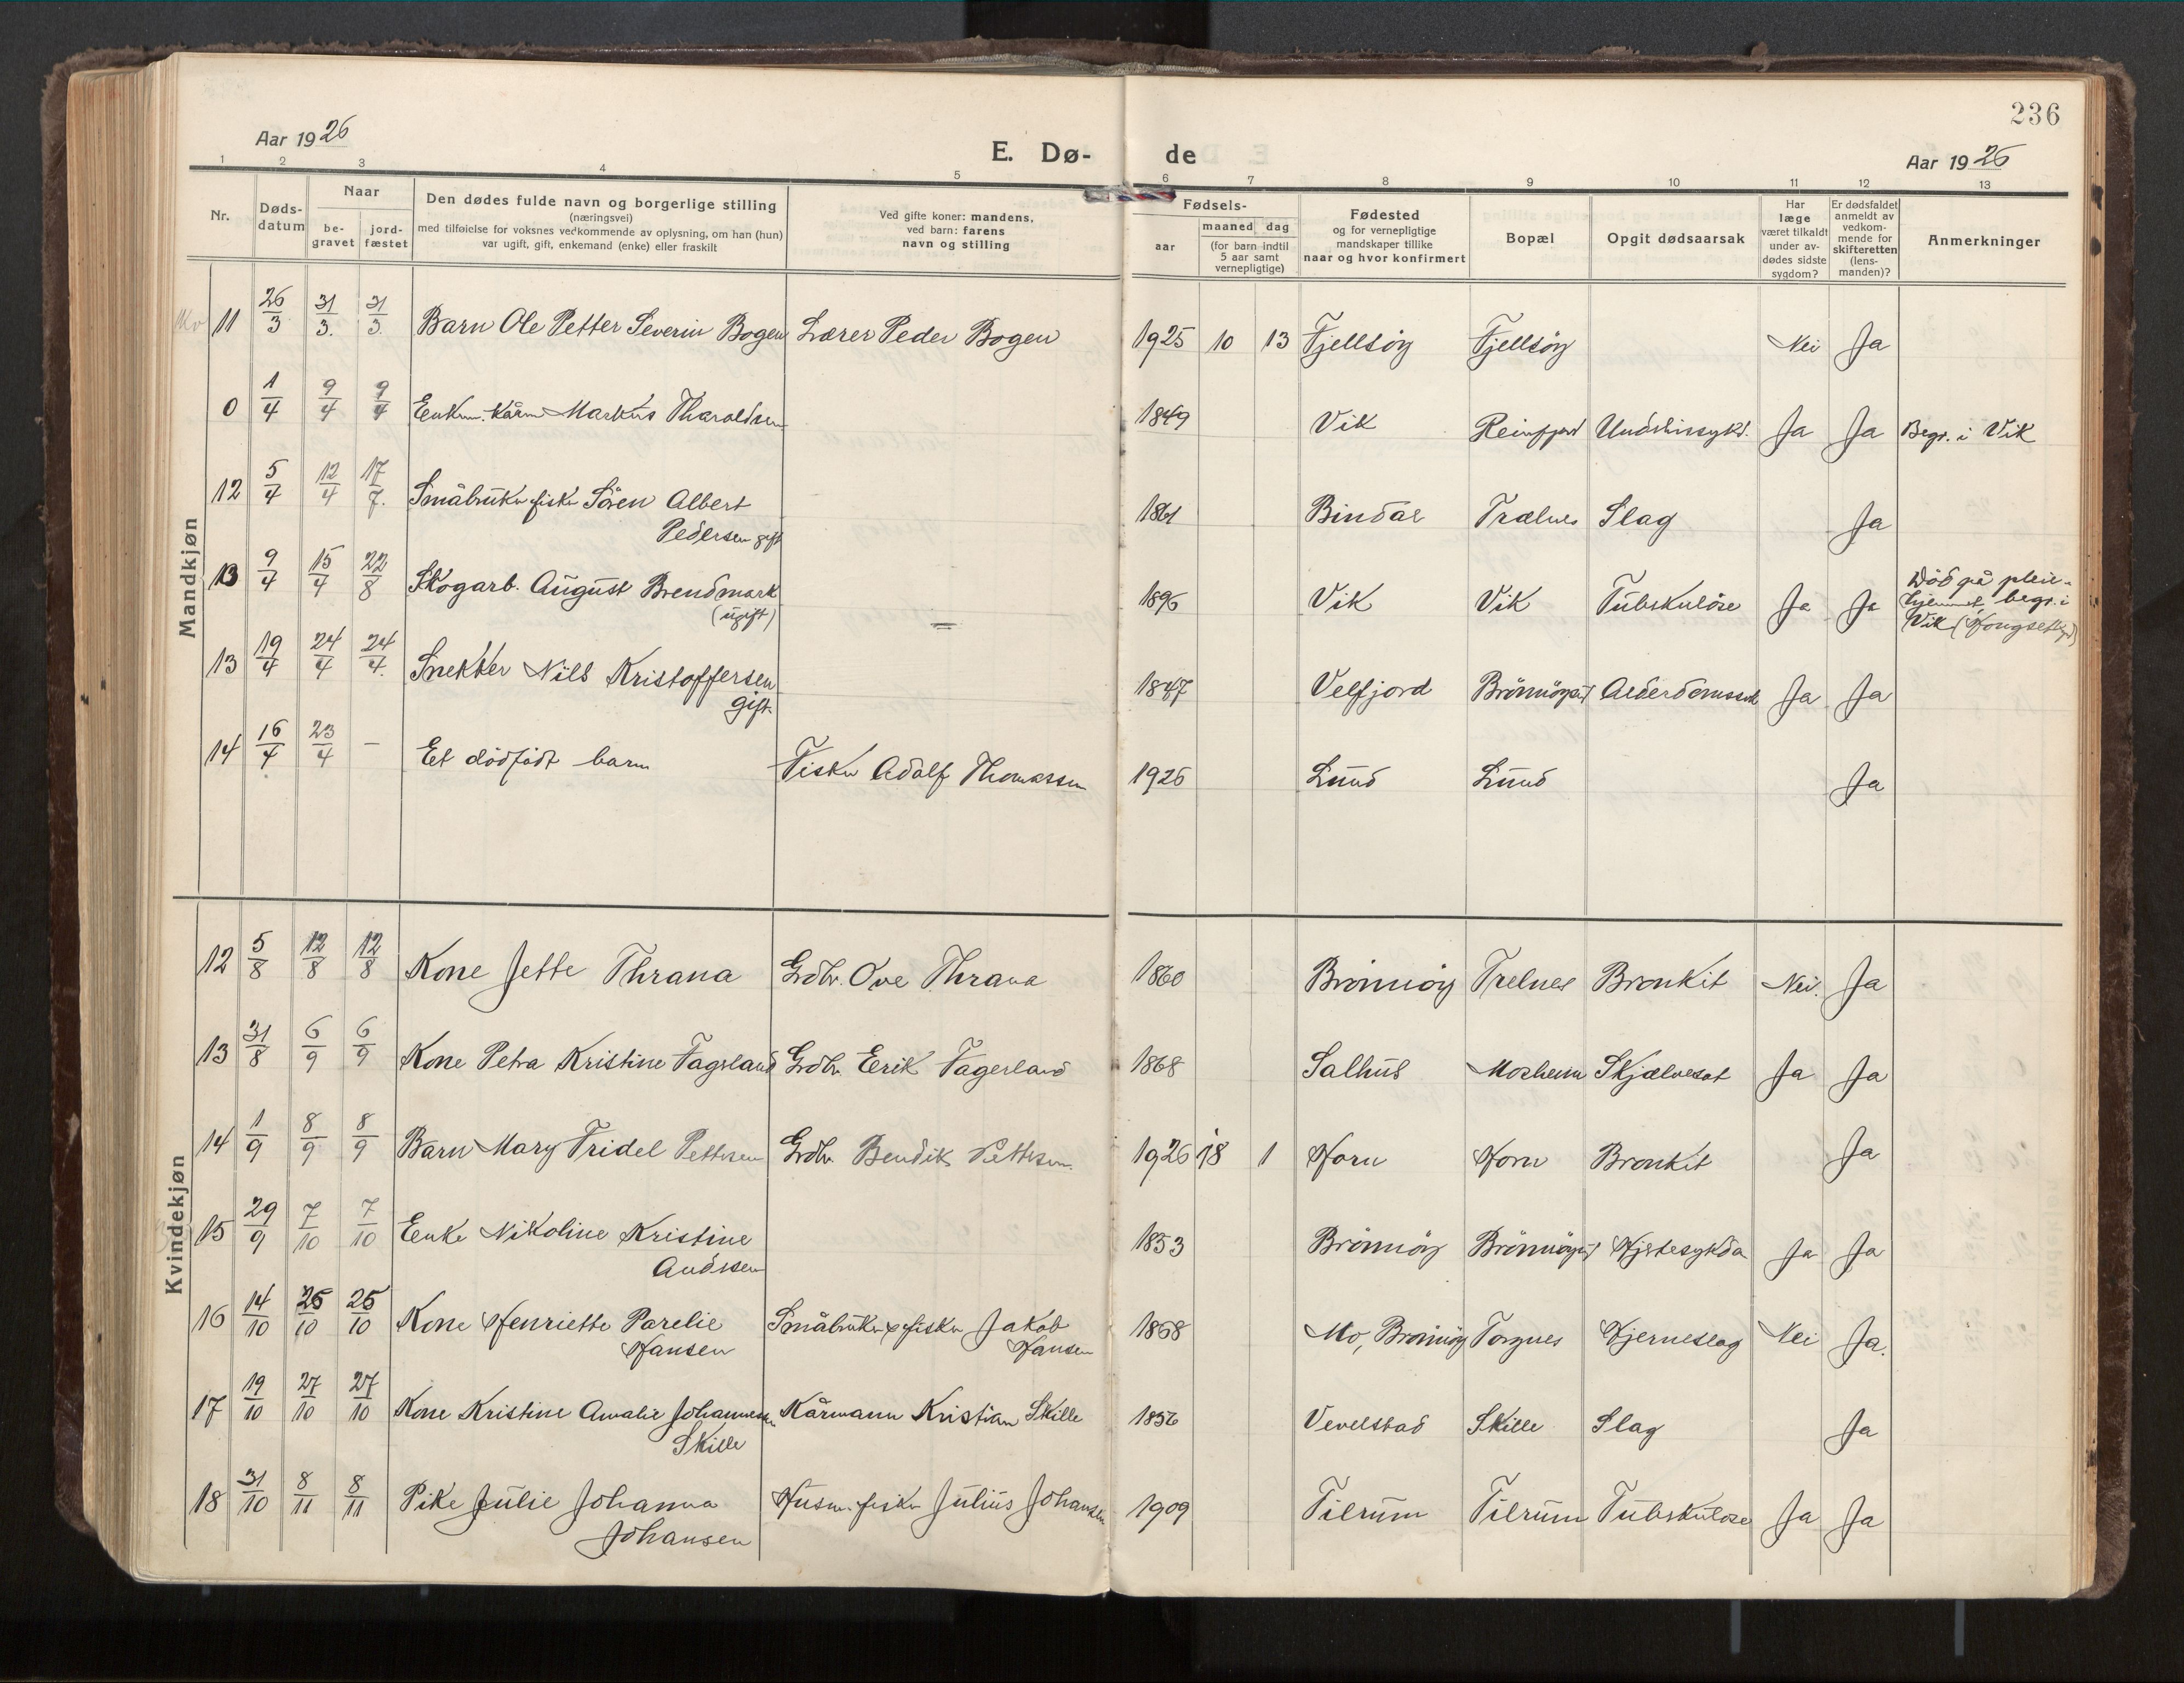 236
Aar 1926
E. Dø-
de
Aar 1926
1 2 3 4 5 6 7 8 9 10 11 12 13
Nr.
Døds-
datum
Naar
be-
gravet
jord-
fæstet
Den dødes fulde navn og borgerlige stilling
(næringsvei)
med tilføielse for voksnes vedkommende av oplysning, om han (hun)
var ugift, gift, enkemand (enke) eller fraskilt
Ved gifte koner: mandens,
ved barn: farens
navn og stilling
Fødsels-
aar
maaned dag
(for barn indtil
5 aar samt
vernepligtige)
Fødested
og for vernepligtige
mandskaper tillike
naar og hvor konfirmert
Bopæl
Opgit dødsaarsak
Har
læge
været tilkaldt
under av-
dødes sidste
sygdom?
Er dødsfaldet
anmeldt av
vedkom-
mende for
skifteretten
(lens-
manden)?
Anmerkninger
Mandkjøn
11 26/3 31/3. 31/3. Barn Ole Petter Severin Bogen Lærer Peder Bogen 1925 10 13 Tjellsöy Tjellsöy Nei Ja
0 1/4 9/4 9/4 Enkm. Kårm Markus Tharaldsen 1849 Vik Reinfjord Ja Ja Begr. i Vik
12 5/4 12/4 17/7. Småbruker fisker Sören Albert
Pedersen gift 1861 Bindal Trælnes Slag Ja
13 9/4 15/4 22/8 Skogarb. August Brendmark
(ugift) — 1896 Vik Vik Tuberkulöse Ja Ja Död på pleie-
hjemmet, begr. i
Vik
13 19/4 24/4 24/4. Snekker Nils Kristoffersen
gift. 1847 Velfjord Brönnöysd Alderdomssvk Ja Ja
14 16/4 23/4 — Et dödfödt barn Fisker Adolf Thomassen 1926 Lund Lund Ja
Kvindekjøn
12 5/8 12/8 12/8 Kone Jette Thrana Grdbr. Ove Thrana 1860 Brönnöy Trelnes Bronkit Nei. Ja
13 31/8 6/9 6/9 Kone Petra Kristine Fagerland Grdbr. Eerik Fagerland 1868 Salhus Mosheim Skjælvesot Ja Ja
14 1/9 8/9 8/9 Barn Mary Fridel Pettersen Grdbr. Bendik Pettersen. 1926 18 1 Horn Horn Bronkit Ja
15 29/9 7/10 7/10 Enke Nikoline Kristine
Andersen 1853 Brönnöy Brönnöysd Hjertesykdo Ja Ja
16 14/10 25/10 25/10 Kone Henriette Parelie
Hansen Småbruker & fisker Jakob
Hansen 1868 Mo, Brönnöy Torgnes Hjerneslag Nei Ja.
17 19/10 27/10 27/10 Kone Kristine Amalie Johannesen
Skille Kårmann Kristian Skille 1856 Vevelstad Skille Slag Ja
18 31/10 8/11 8/11 Pike Julie Johanna
Johansen Husm. fisker Julius Johansen 1909 Tilrum Tilrum Tuberkulose Ja Ja